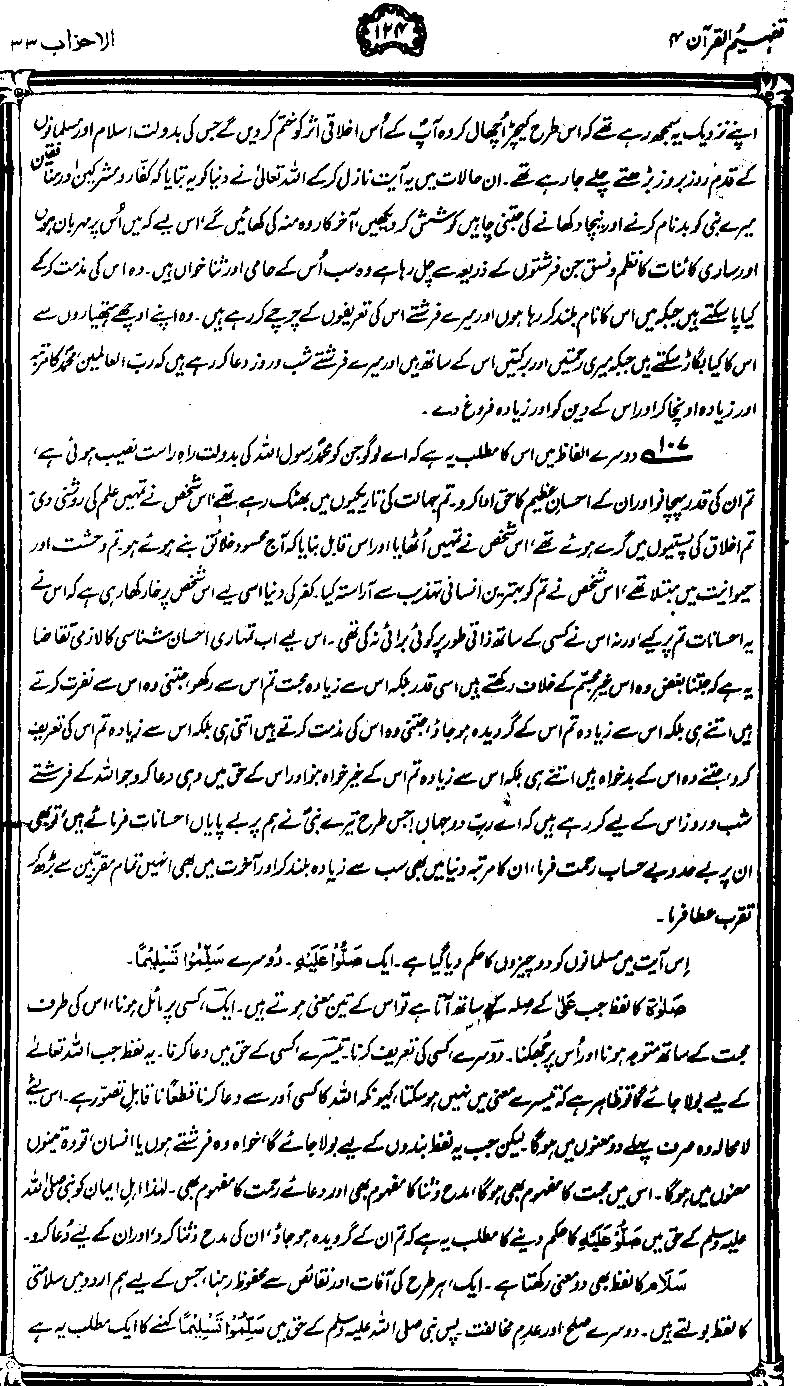 تفہیم القرآن ۴
۱۲۴
الاحزاب ۳۳
اپنے نزدیک یہ سمجھ رہے تھے کہ اس طرح کیچڑ اُچھال کر وہ آپؐ کے اُس اخلاقی اثر کو ختم کر دیں گے جس کی بدولت اسلام اور مسلمانوں
کے قدم روز بروز بڑھتے چلے جا رہے تھے۔ ان حالات میں یہ آیت نازل کر کے اللہ تعالیٰ نے دنیا کو یہ بتایا کہ کفار و مشرکین اور منافقین
میرے نبی کو بدنام کرنے اور نیچا دکھانے کی جتنی چاہیں کوشش کر دیکھیں، آخر کار وہ منہ کی کھائیں گے، اس لیے کہ میں اُس پر مہربان ہوں
اور ساری کائنات کا نظم و نسق جن فرشتوں کے ذریعہ سے چل رہا ہے وہ سب اُس کے حامی اور ثنا خواں ہیں۔ وہ اس کی مذمت کر کے
کیا پا سکتے ہیں جبکہ میں اس کا نام بلند کر رہا ہوں اور میرے فرشتے اس کی تعریفوں کے چرچے کر رہے ہیں۔ وہ اپنے اوچھے ہتھیاروں سے
اس کا کیا بگاڑ سکتے ہیں جبکہ میری رحمتیں اور برکتیں اس کے ساتھ ہیں اور میرے فرشتے شب و روز دعا کر رہے ہیں کہ رب العالمین، محمدؐ کا مرتبہ
اور زیادہ اونچا کر اور اس کے دین کو اور زیادہ فروغ دے۔
۱۰۷ دوسرے الفاظ میں اس کا مطلب یہ ہے کہ اے لوگو جن کو محمدؐ رسول اللہ کی بدولت راہِ راست نصیب ہوئی ہے،
تم ان کی قدر پہچانو اور ان کے احسانِ عظیم کا حق ادا کرو۔ تم جہالت کی تاریکیوں میں بھٹک رہے تھے، اس شخص نے تمہیں علم کی روشنی دی۔
تم اخلاق کی پستیوں میں گرے ہوئے تھے، اس شخص نے تمہیں اُٹھایا اور اس قابل بنایا کہ آج محسودِ خلائق بنے ہوئے ہو۔ تم وحشت اور
حیوانیت میں مبتلا تھے، اس شخص نے تم کو بہترین انسانی تہذیب سے آراستہ کیا۔ کفر کی دنیا اسی لیے اس شخص پر خار کھا رہی ہے کہ اس نے
یہ احسانات تم پر کیے، ورنہ اس نے کسی کے ساتھ ذاتی طور پر کوئی برائی نہ کی تھی۔ اس لیے اب تمہاری احسان شناسی کا لازمی تقاضا
یہ ہے کہ جتنا بغض وہ اس خیرِ مجسم کے خلاف رکھتے ہیں اسی قدر بلکہ اس سے زیادہ محبت تم اس سے رکھو، جتنی وہ اس سے نفرت کرتے
ہیں اتنے ہی بلکہ اس سے زیادہ تم اس کے گرویدہ ہو جاؤ، جتنی وہ اس کی مذمت کرتے ہیں اتنی ہی بلکہ اس سے زیادہ تم اس کی تعریف
کرو، جتنے وہ اس کے بدخواہ ہیں اتنے ہی بلکہ اس سے زیادہ تم اس کے خیر خواہ بنو اور اس کے حق میں وہی دعا کرو جو اللہ کے فرشتے
شب و روز اس کے لیے کر رہے ہیں کہ اے ربِ دو جہاں! جس طرح تیرے نبیؐ نے ہم پر بے پایاں احسانات فرمائے ہیں، تو بھی
ان پر بے حد و بے حساب رحمت فرما، ان کا مرتبہ دنیا میں بھی سب سے زیادہ بلند کر اور آخرت میں بھی انہیں تمام مقربین سے بڑھ کر
تقرب عطا فرما۔
اِس آیت میں مسلمانوں کو دو چیزوں کا حکم دیا گیا ہے۔ ایک صَلُّوْا عَلَيْهِ۔ دُوسرے سَلِّمُوْا تَسْلِيْمًا۔
صَلوٰۃ کا لفظ جب عَلیٰ کے صلہ کے ساتھ آتا ہے تو اس کے تین معنی ہوتے ہیں۔ ایک، کسی پر مائل ہونا، اس کی طرف
محبت کے ساتھ متوجہ ہونا اور اُس پر جھکنا۔ دوسرے کسی کی تعریف کرنا۔ تیسرے، کسی کے حق میں دعا کرنا۔ یہ لفظ جب اللہ تعالیٰ
کے لیے بولا جائے گا تو ظاہر ہے کہ تیسرے معنی میں نہیں ہو سکتا، کیونکہ اللہ کا کسی اَور سے دعا کرنا قطعاً ناقابلِ تصوّر ہے۔ اس لیے
لا محالہ وہ صرف پہلے دو معنوں میں ہوگا۔ لیکن جب یہ لفظ بندوں کے لیے بولا جائے گا، خواہ وہ فرشتے ہوں یا انسان، تو وہ تینوں
معنوں میں ہوگا۔ اس میں محبت کا مفہوم بھی ہوگا، مدح و ثنا کا مفہوم بھی اور دعائے رحمت کا مفہوم بھی۔ لہٰذا اہلِ ایمان کو نبی صلی اللہ
علیہ وسلم کے حق میں صَلُّوْا عَلَيْهِ کا حکم دینے کا مطلب یہ ہے کہ تم ان کے گرویدہ ہو جاؤ، ان کی مدح و ثنا کرو، اور ان کے لیے دُعا کرو۔
سَلَام کا لفظ بھی دو معنی رکھتا ہے۔ ایک، ہر طرح کی آفات اور نقائص سے محفوظ رہنا، جس کے لیے ہم اردو میں سلامتی
کا لفظ بولتے ہیں۔ دوسرے صلح اور عدمِ مخالفت۔ پس نبی صلی اللہ علیہ وسلم کے حق میں سَلِّمُوْا تَسْلِيْمًا کہنے کا ایک مطلب یہ ہے